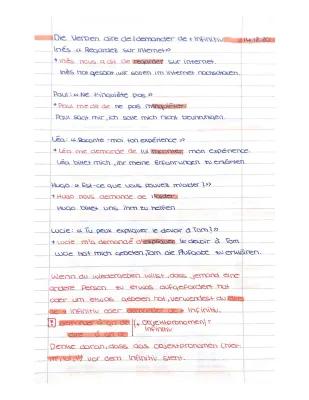 Die Verben dire de/demander de + Infinitiv
Inès: « Regardez sur internet »
→ Inès nous a dit de regarder sur internet.
Inès hat gesagt, wir sollen im Internet nachschauen.
Paul: « Ne t'inquiète pas »
→ Paul me dit de ne pas m'inquiéter
Paul sagt mir, ich solle mich nicht beunruhigen.
Léa: « Raconte-moi ton expérience »
→ Léa me demande de lui raconter mon expérience.
Léa bittet mich, ihr meine Erfahrungen zu erzählen
Hugo: « Est-ce que vous pouvez m'aider? »
→ Hugo nous demande de l'aider
Hugo bittet uns ihm zu helfen
Lucie: « Tu peux expliquer le devoir à Tom? »
→ Lucie m'a demandé d'expliquer le devoir à Tom
Lucie hat mich gebeten, Tom die Aufgabe zu erklären.
Wenn du wiedergeben willst, dass jemand eine
andere Person zu etwas aufgefordert hat
oder um etwas gebeten hat, verwendest du dire
de + Infinitiv oder demander de + Infinitiv.
demander à qn de + (Objektpronomen) +
dire à qn de Infinitiv
Denke daran, dass das Objektpronomen (hier:
) vor dem Infinitiv steht.